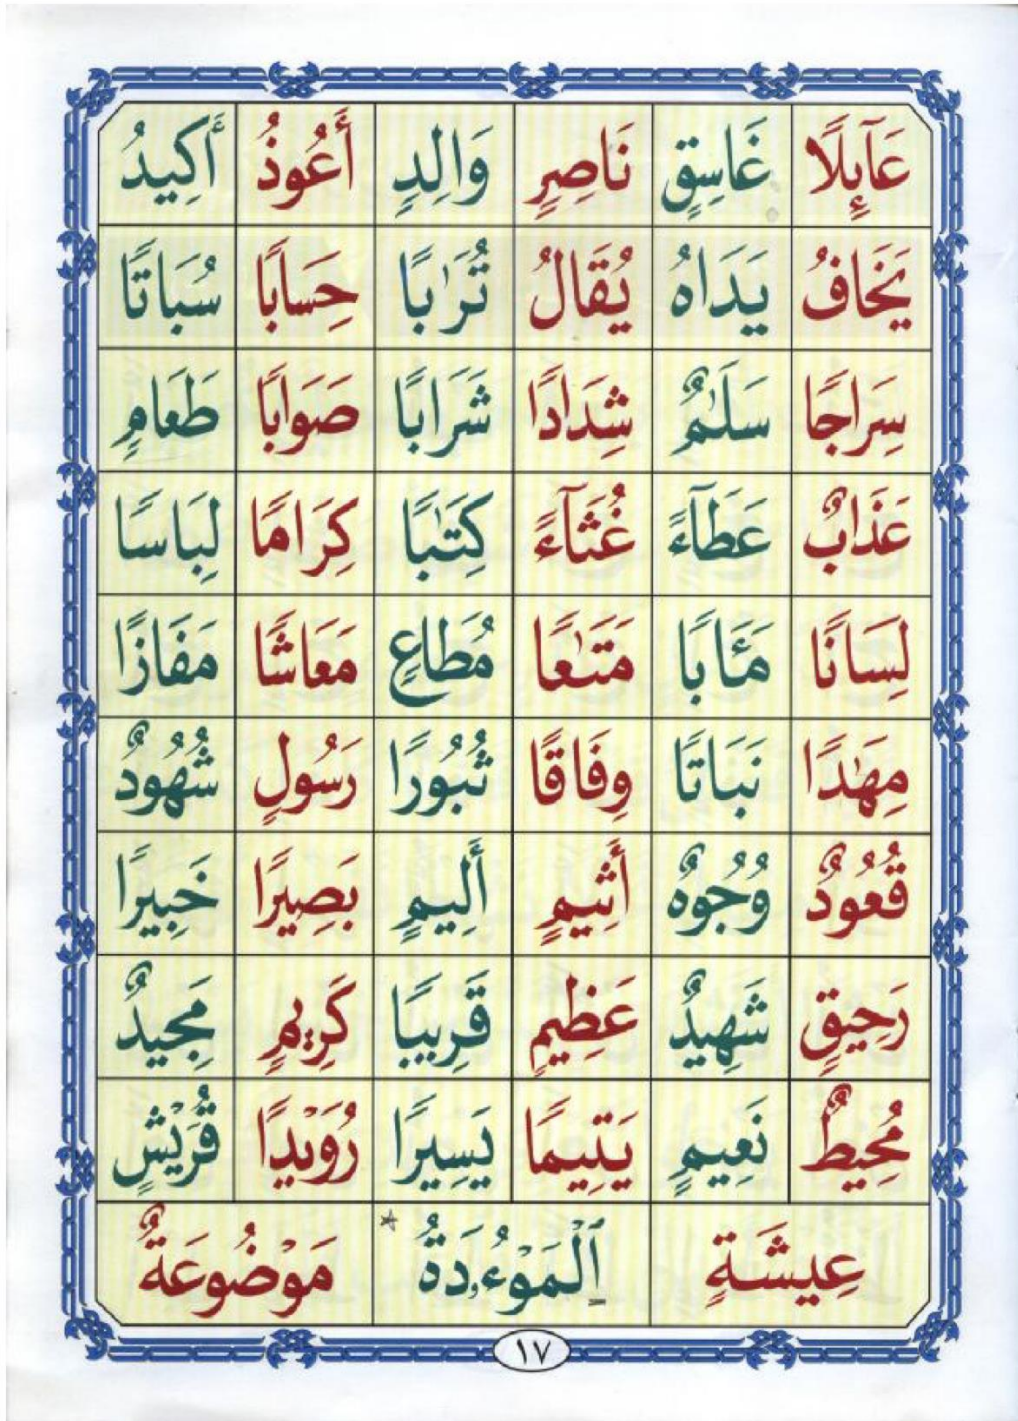 عَآئِلًا غَاسِقٍ نَاصِرٍ وَالِدٍ أَعُوذُ أَكِيدُ
يَخَافُ يَدَاهُ يُقَالُ تُرَٰبًا حِسَابًا سُبَاتًا
سِرَاجًا سَلَٰمٌ شِدَادًا شَرَابًا صَوَابًا طَعَامٍ
عَذَابٌ عَطَآءً غُثَآءً كِتَٰبًا كِرَامًا لِبَاسًا
لِسَانًا مَـَٔابًا مَتَٰعًا مُطَاعٍ مَعَاشًا مَفَازًا
مِهَٰدًا نَبَاتًا وِفَاقًا ثُبُورًا رَسُولٍ شُهُودٌ
قُعُودٌ وُجُوهٌ أَثِيمٍ أَلِيمٍ بَصِيرًا خَبِيرًا
رَحِيقٍ شَهِيدٌ عَظِيمٍ قَرِيبًا كَرِيمٍ مَجِيدٌ
مُحِيطٌ نَعِيمٍ يَتِيمًا يَسِيرًا رُوَيْدًا قُرَيْشٍ
عِيشَةٍ ٱلْمَوْءُۥدَةُ * مَوْضُوعَةٌ
١٧